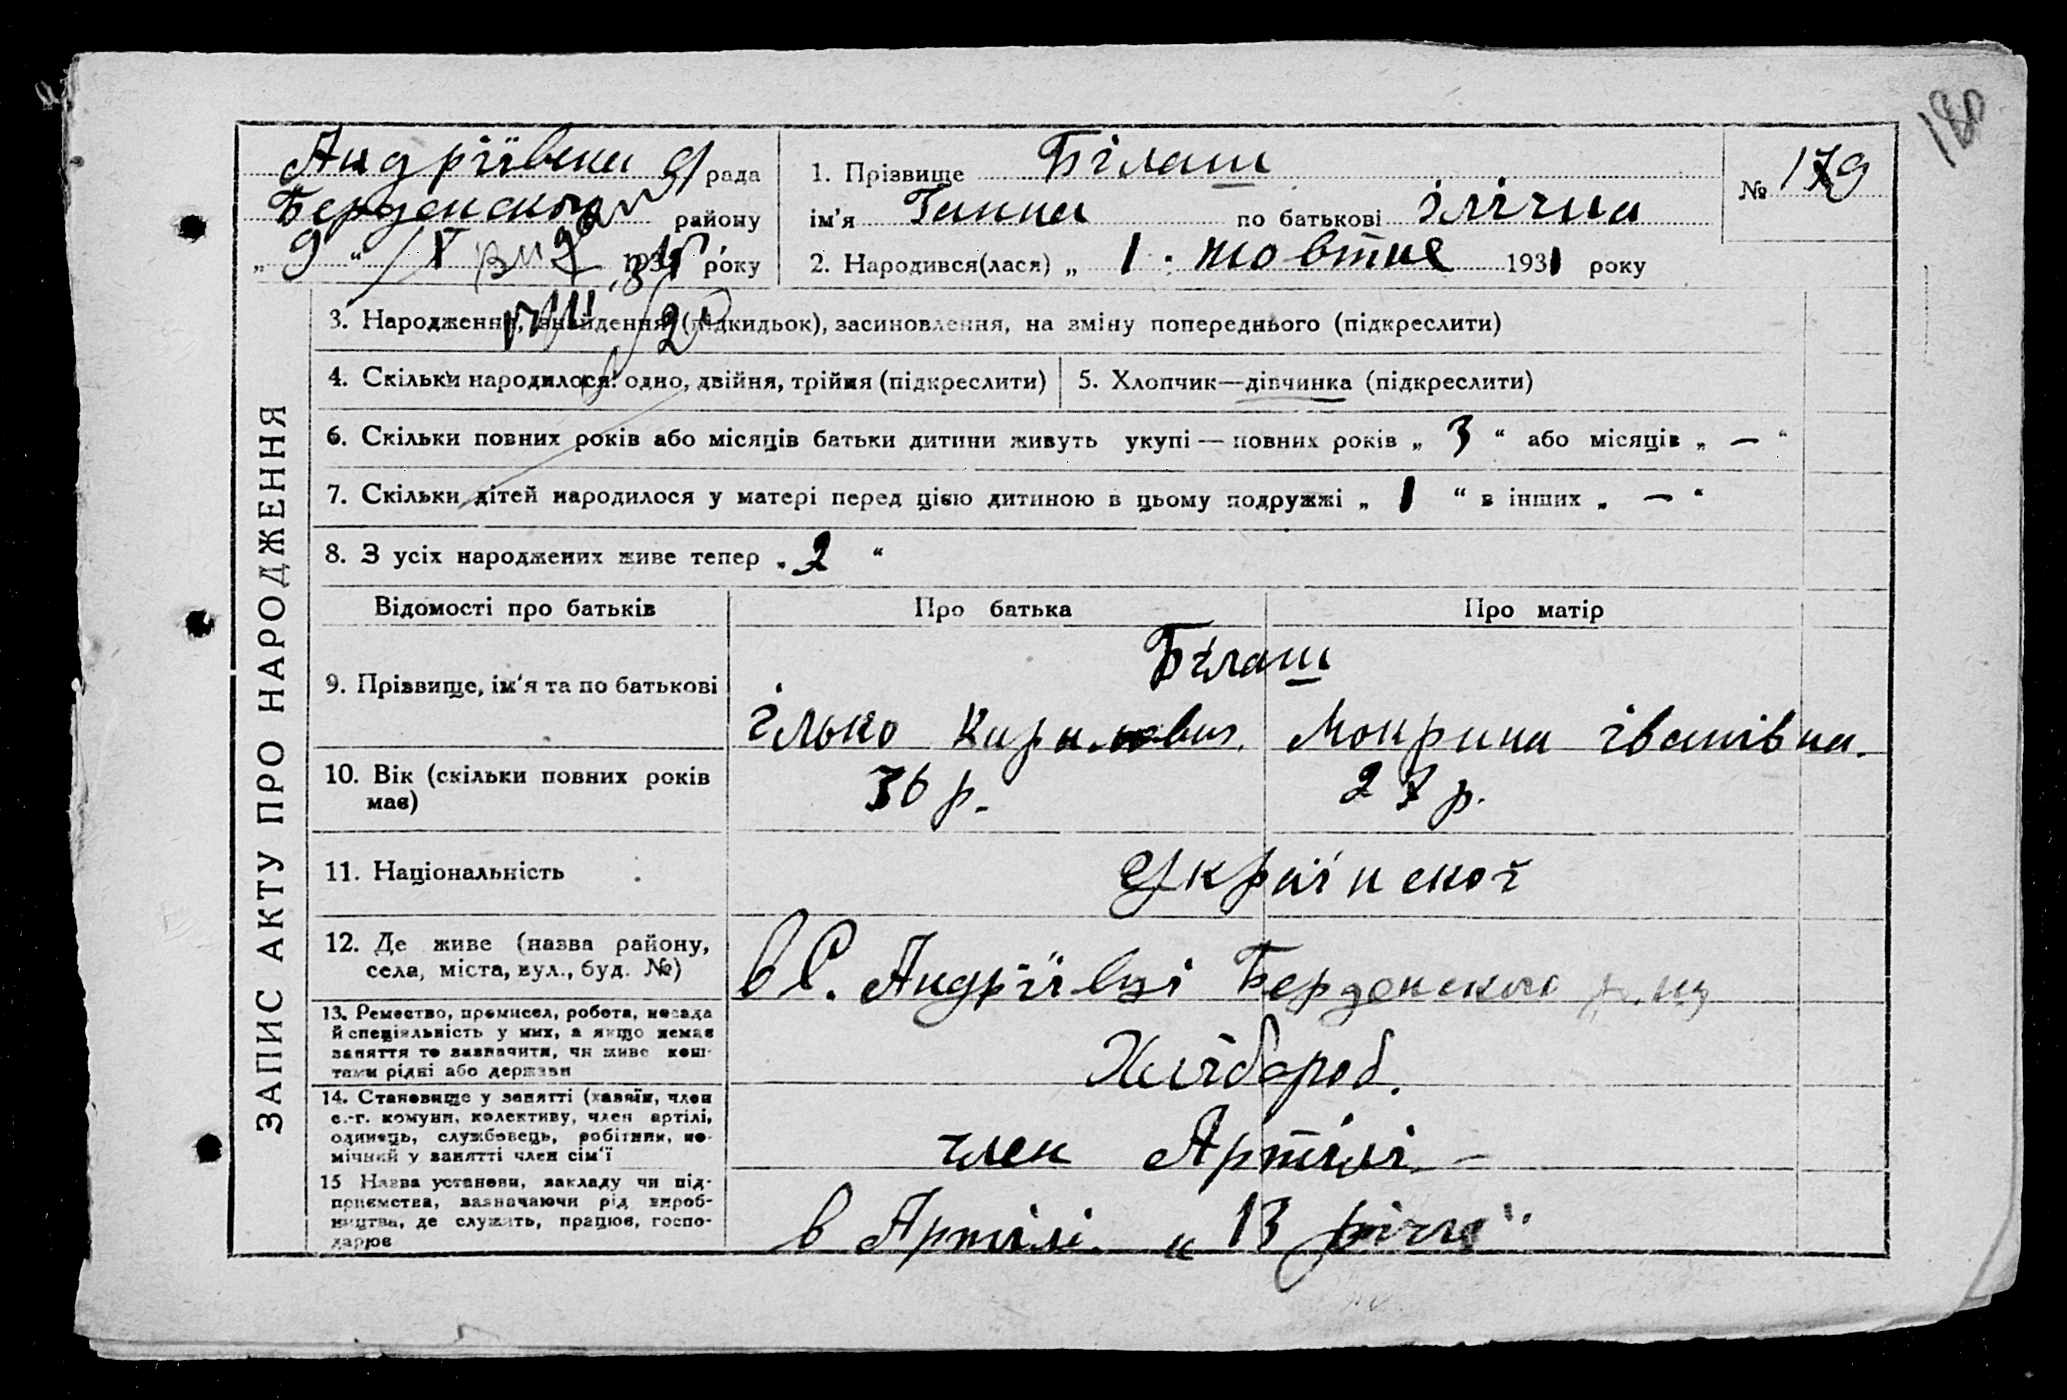 180
Андріївська рада
Берденського району
„ 9 “ IX 1931 року
1. Прізвище Білаш
ім’я Ганна по батькові ілічна
2. Народився(лася) „ 1 . жовтня 1931 року
№ 179
ЗАПИС АКТУ ПРО НАРОДЖЕННЯ
3. Народження, знайдення (підкидьок), засиновлення, на зміну попереднього (підкреслити)
4. Скільки народилося: одно, двійня, трійня (підкреслити)
5. Хлопчик—дівчинка (підкреслити)
6. Скільки повних років або місяців батьки дитини живуть укупі — повних років „ 3 “ або місяців „ — “
7. Скільки дітей народилося у матері перед цією дитиною в цьому подружжі „ 1 “ в інших „ — “
8. З усіх народжених живе тепер „ 2 “
Відомості про батьків Про батька Про матір
9. Прізвище, ім’я та по батькові
Білаш
ілько Кирилович. Мокрина іванівна.
10. Вік (скільки повних років
має)
36 р. 27 р.
11. Національність
української
12. Де живе (назва району,
села, міста, вул., буд. №)
в С. Андріївці Берденського р.
13. Ремество, промисел, робота, посада
й спеціяльність у них, а якщо немає
заняття то зазначити, чи живе кош-
тами рідні або держави
Хлібороб.
14. Становище у занятті (хазяїн, член
с.-г. комуни, колективу, член артілі,
одинець, службовець, робітник, по-
мічний у занятті член сім’ї
член Артілі —
15 Назва установи, закладу чи під-
приємства, зазначаючи рід вироб-
ництва, де служить, працює, госпо-
дарює
в Артілі. „ 13 річчя“